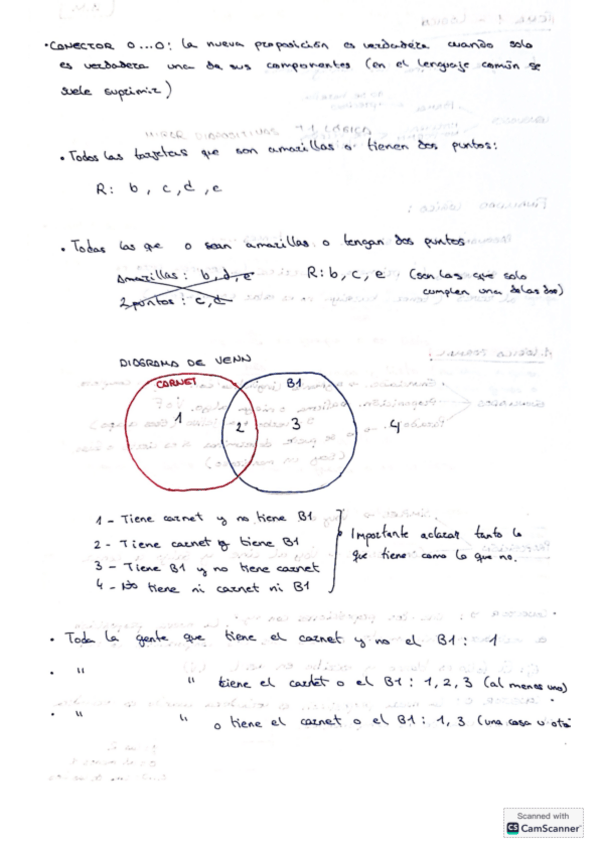 • CONECTOR O...O: la nueva proposición es verdadera cuando solo
es verdadera una de sus componentes (en el lenguaje común se
suele suprimir)
• Todas las tarjetas que son amarillas o tienen dos puntos:
R: b, c, d, e
• Todas las que o sean amarillas o tengan dos puntos
Amarillas: b, d, e R: b, c, e (son las que solo
2 puntos: c, d cumplen una de las dos)
DIAGRAMA DE VENN
CARNET B1
1 2 3 4
1 - Tiene carnet y no tiene B1
2 - Tiene carnet y tiene B1
3 - Tiene B1 y no tiene carnet
4 - No tiene ni carnet ni B1
Importante aclarar tanto lo
que tiene como lo que no.
• Toda la gente que tiene el carnet y no el B1: 1
• " " tiene el carnet o el B1: 1, 2, 3 (al menos uno)
• " " o tiene el carnet o el B1: 1, 3 (una cosa u otra
Scanned with
CS CamScanner